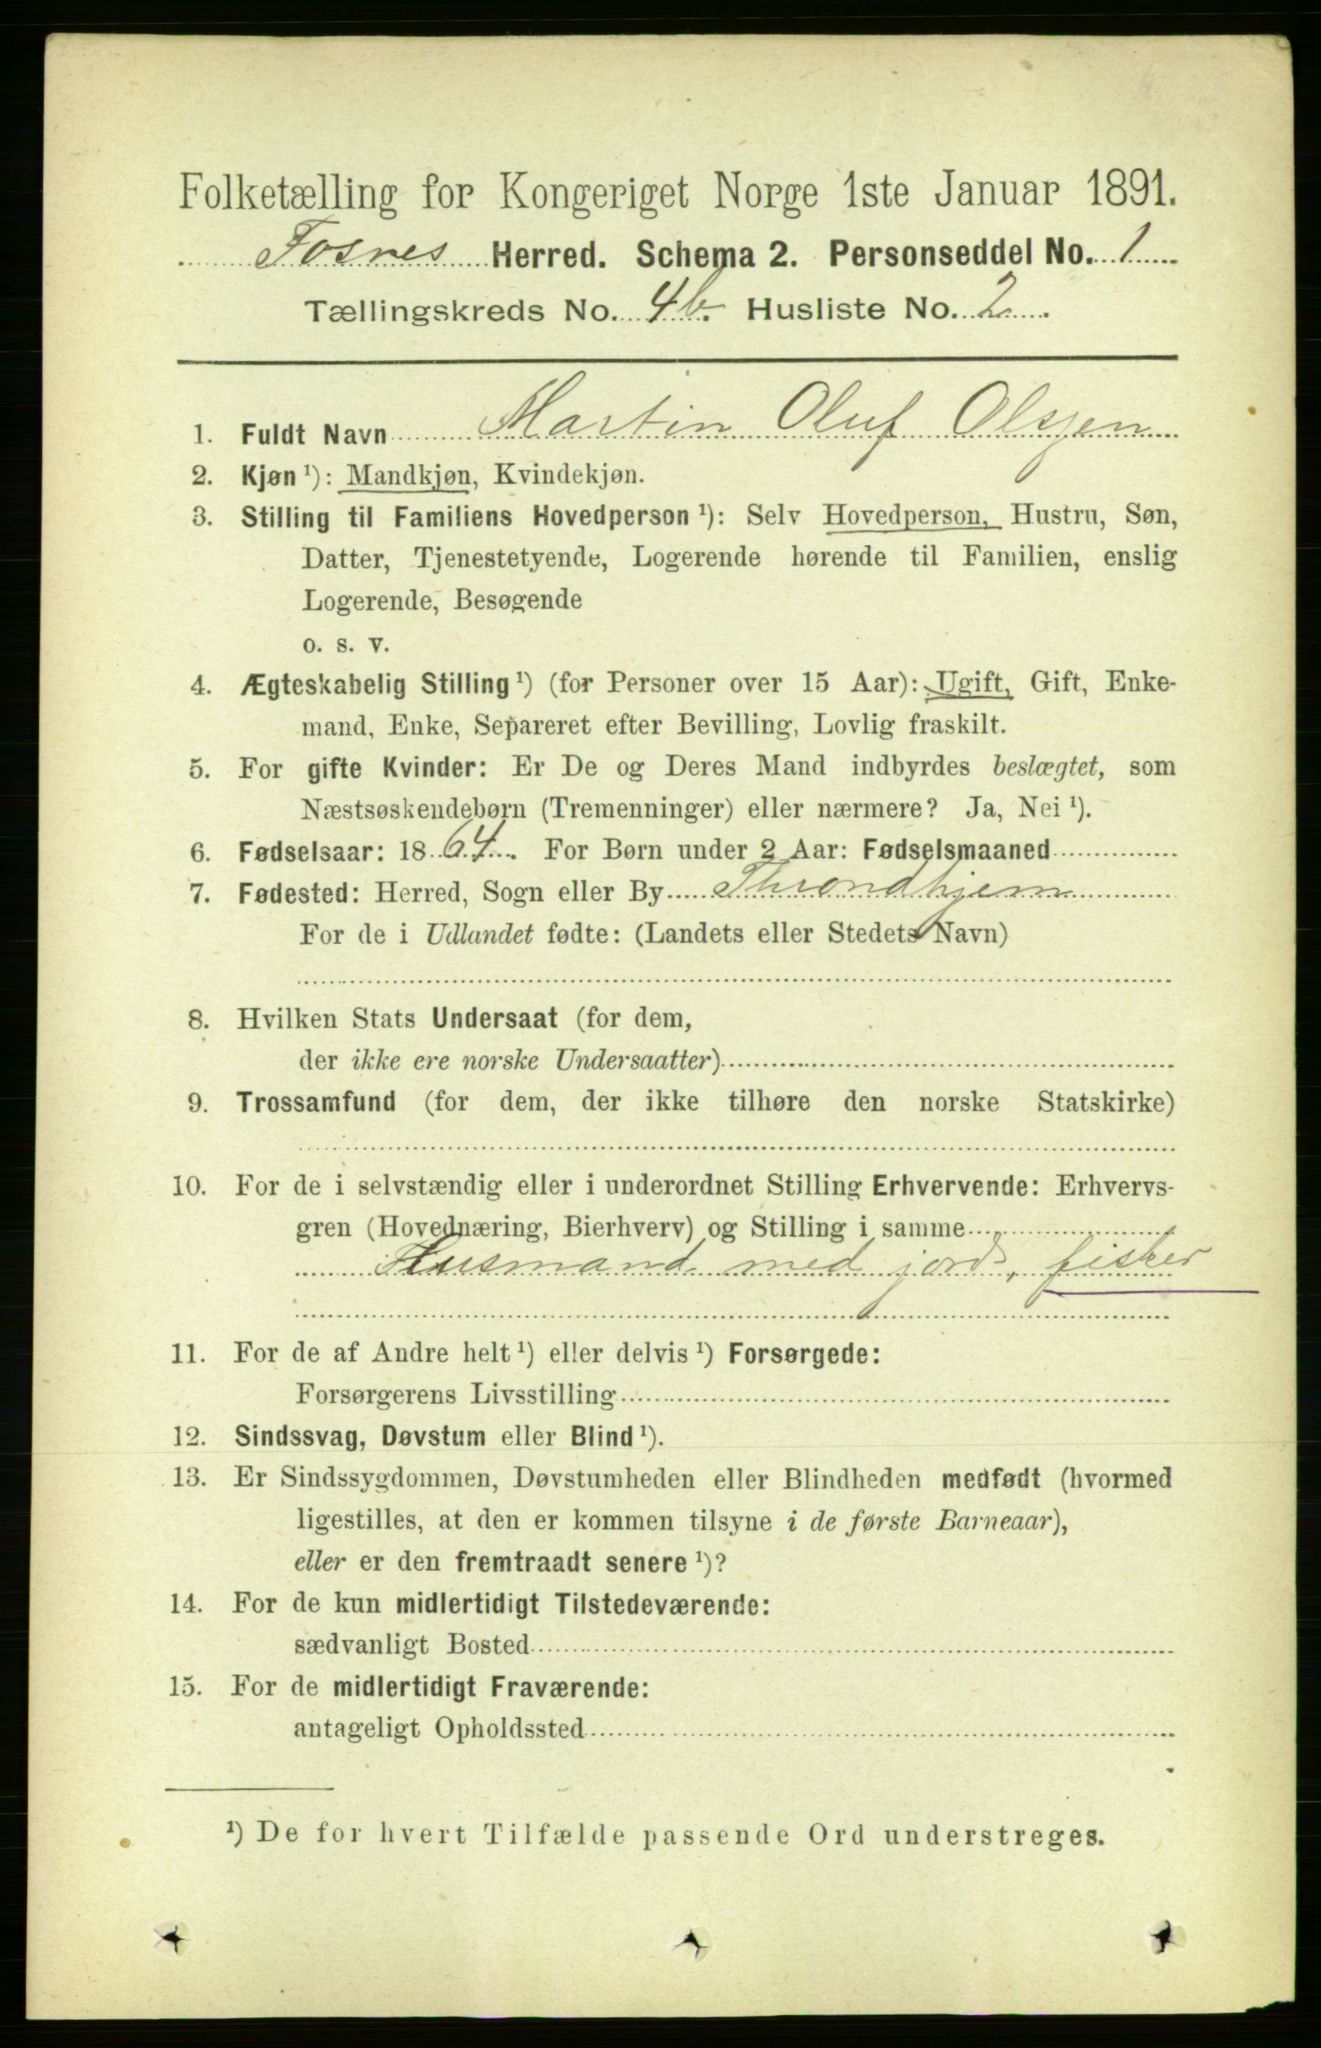 Folketælling for Kongeriget Norge 1ste Januar 1891.
Fosnes Herred. Schema 2. Personseddel No. 1
Tællingskreds No. 4b. Husliste No. 2
1. Fuldt Navn Martin Oluf Olsen
2. Kjøn ¹): Mandkjøn, Kvindekjøn.
3. Stilling til Familiens Hovedperson ¹): Selv Hovedperson, Hustru, Søn,
Datter, Tjenestetyende, Logerende hørende til Familien, enslig
Logerende, Besøgende
o. s. v.
4. Ægteskabelig Stilling ¹) (for Personer over 15 Aar): Ugift, Gift, Enke-
mand, Enke, Separeret efter Bevilling, Lovlig fraskilt.
5. For gifte Kvinder: Er De og Deres Mand indbyrdes beslægtet, som
Næstsøskendebørn (Tremenninger) eller nærmere? Ja, Nei ¹).
6. Fødselsaar: 1864. For Børn under 2 Aar: Fødselsmaaned
7. Fødested: Herred, Sogn eller By Throndhjem
For de i Udlandet fødte: (Landets eller Stedets Navn)
8. Hvilken Stats Undersaat (for dem,
der ikke ere norske Undersaatter)
9. Trossamfund (for dem, der ikke tilhøre den norske Statskirke)
10. For de i selvstændig eller i underordnet Stilling Erhvervende: Erhvervs-
gren (Hovednæring, Bierhverv) og Stilling i samme
Husmand med jord, fisker
11. For de af Andre helt ¹) eller delvis ¹) Forsørgede:
Forsørgerens Livsstilling
12. Sindssvag, Døvstum eller Blind ¹).
13. Er Sindssygdommen, Døvstumheden eller Blindheden medfødt (hvormed
ligestilles, at den er kommen tilsyne i de første Barneaar),
eller er den fremtraadt senere ¹)?
14. For de kun midlertidigt Tilstedeværende:
sædvanligt Bosted
15. For de midlertidigt Fraværende:
antageligt Opholdssted
¹) De for hvert Tilfælde passende Ord understreges.